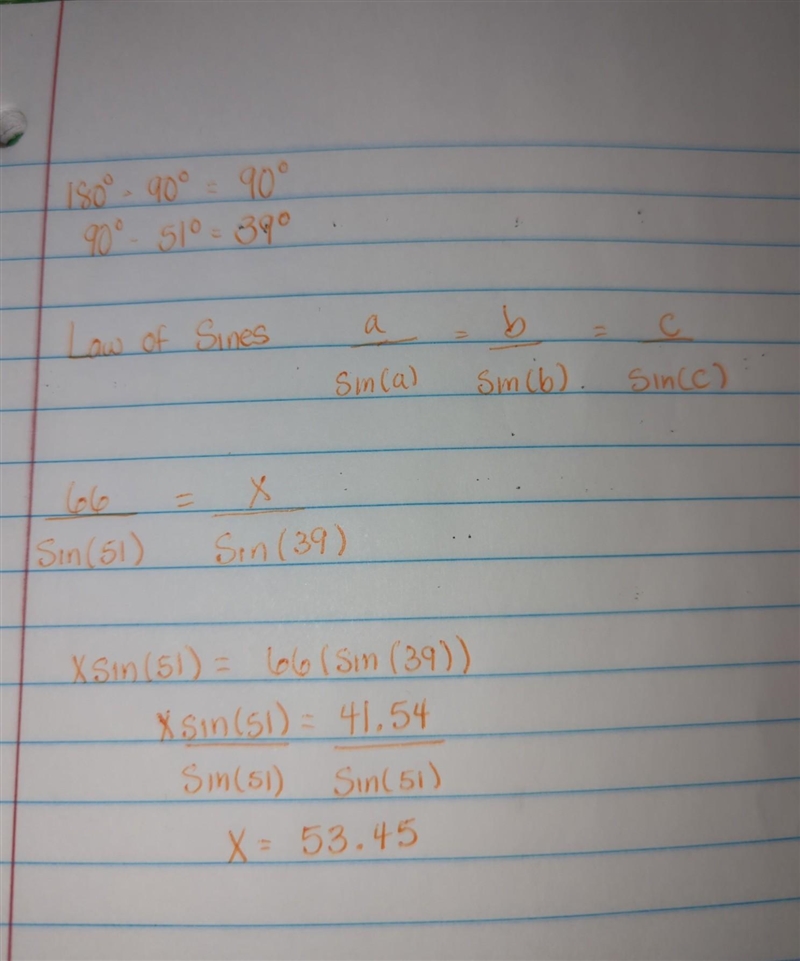 180° - 90° = 90°
90° - 51° = 39°
Law of Sines a/sin(a) = b/sin(b) = c/sin(c)
66/sin(51) = x/sin(39)
x sin(51) = 66(sin(39))
x sin(51)/sin(51) = 41.54/sin(51)
x = 53.45